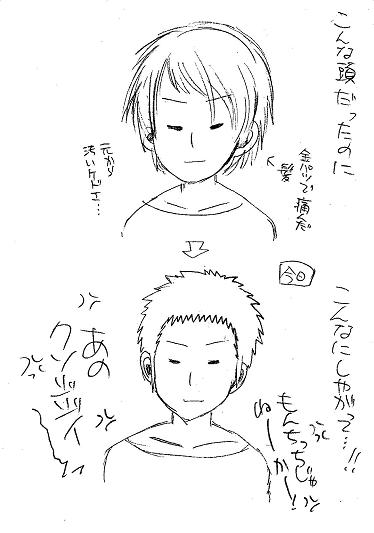 こんな頭だったのに
金パツで痛んだ
髪
元から
渋いケドナ…
今日
こんなにしやがって…!!
あの
クソジジイ
もんちっちじゃ
ねーかー!